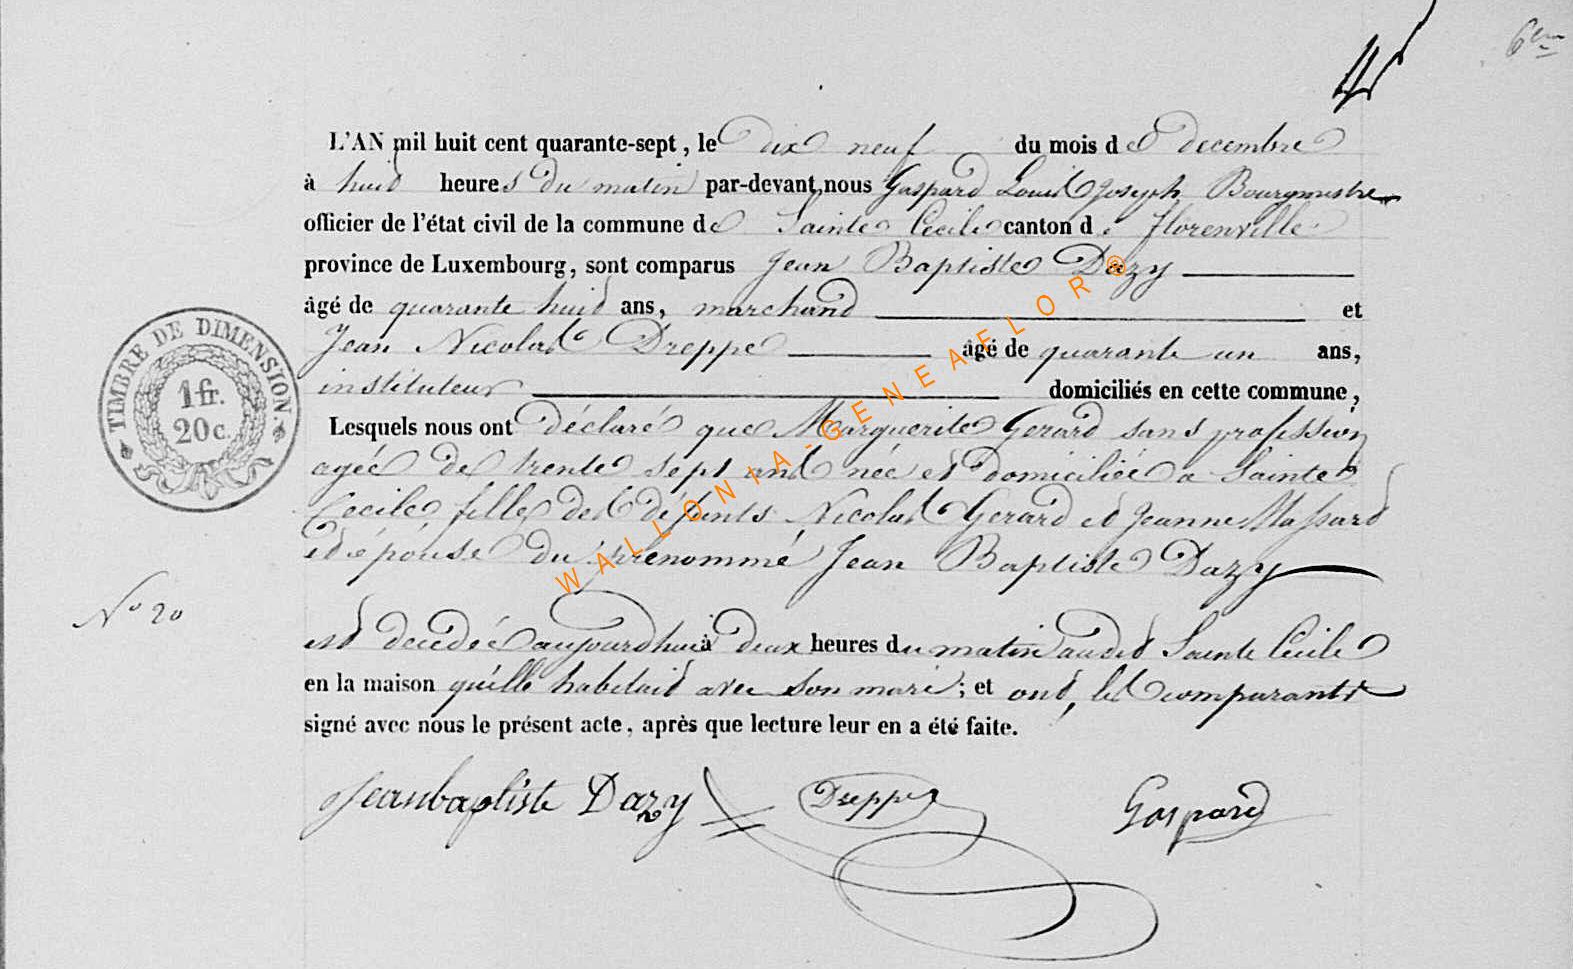 6em
L'AN mil huit cent quarante-sept, le dix neuf du mois de decembre
à huit heures du matin par-devant nous Gaspard Louis Joseph Bourgmestre
officier de l'état civil de la commune de Sainte Cecile canton de Florenville
province de Luxembourg, sont comparus Jean Baptiste Dazy
âgé de quarante huit ans, marchand et
Jean Nicolas Dreppe âgé de quarante un ans,
instituteur domiciliés en cette commune,
Lesquels nous ont déclaré que Marguerite Gerard sans profession
agée de trente sept ans née et domiciliée a Sainte
Cecile fille des défunts Nicolas Gerard et Jeanne Massard
et épouse du prénommé Jean Baptiste Dazy
est decedée aujourdhui à deux heures du matin audit Sainte Cecile
en la maison qu'elle habitait avec son mari ; et ont, les comparants
signé avec nous le présent acte, après que lecture leur en a été faite.
Jeanbaptiste Dazy Dreppe Gaspard
TIMBRE DE DIMENSION.
1 fr.
20 c.
No 20
WALLONIA-GENEAELOR®